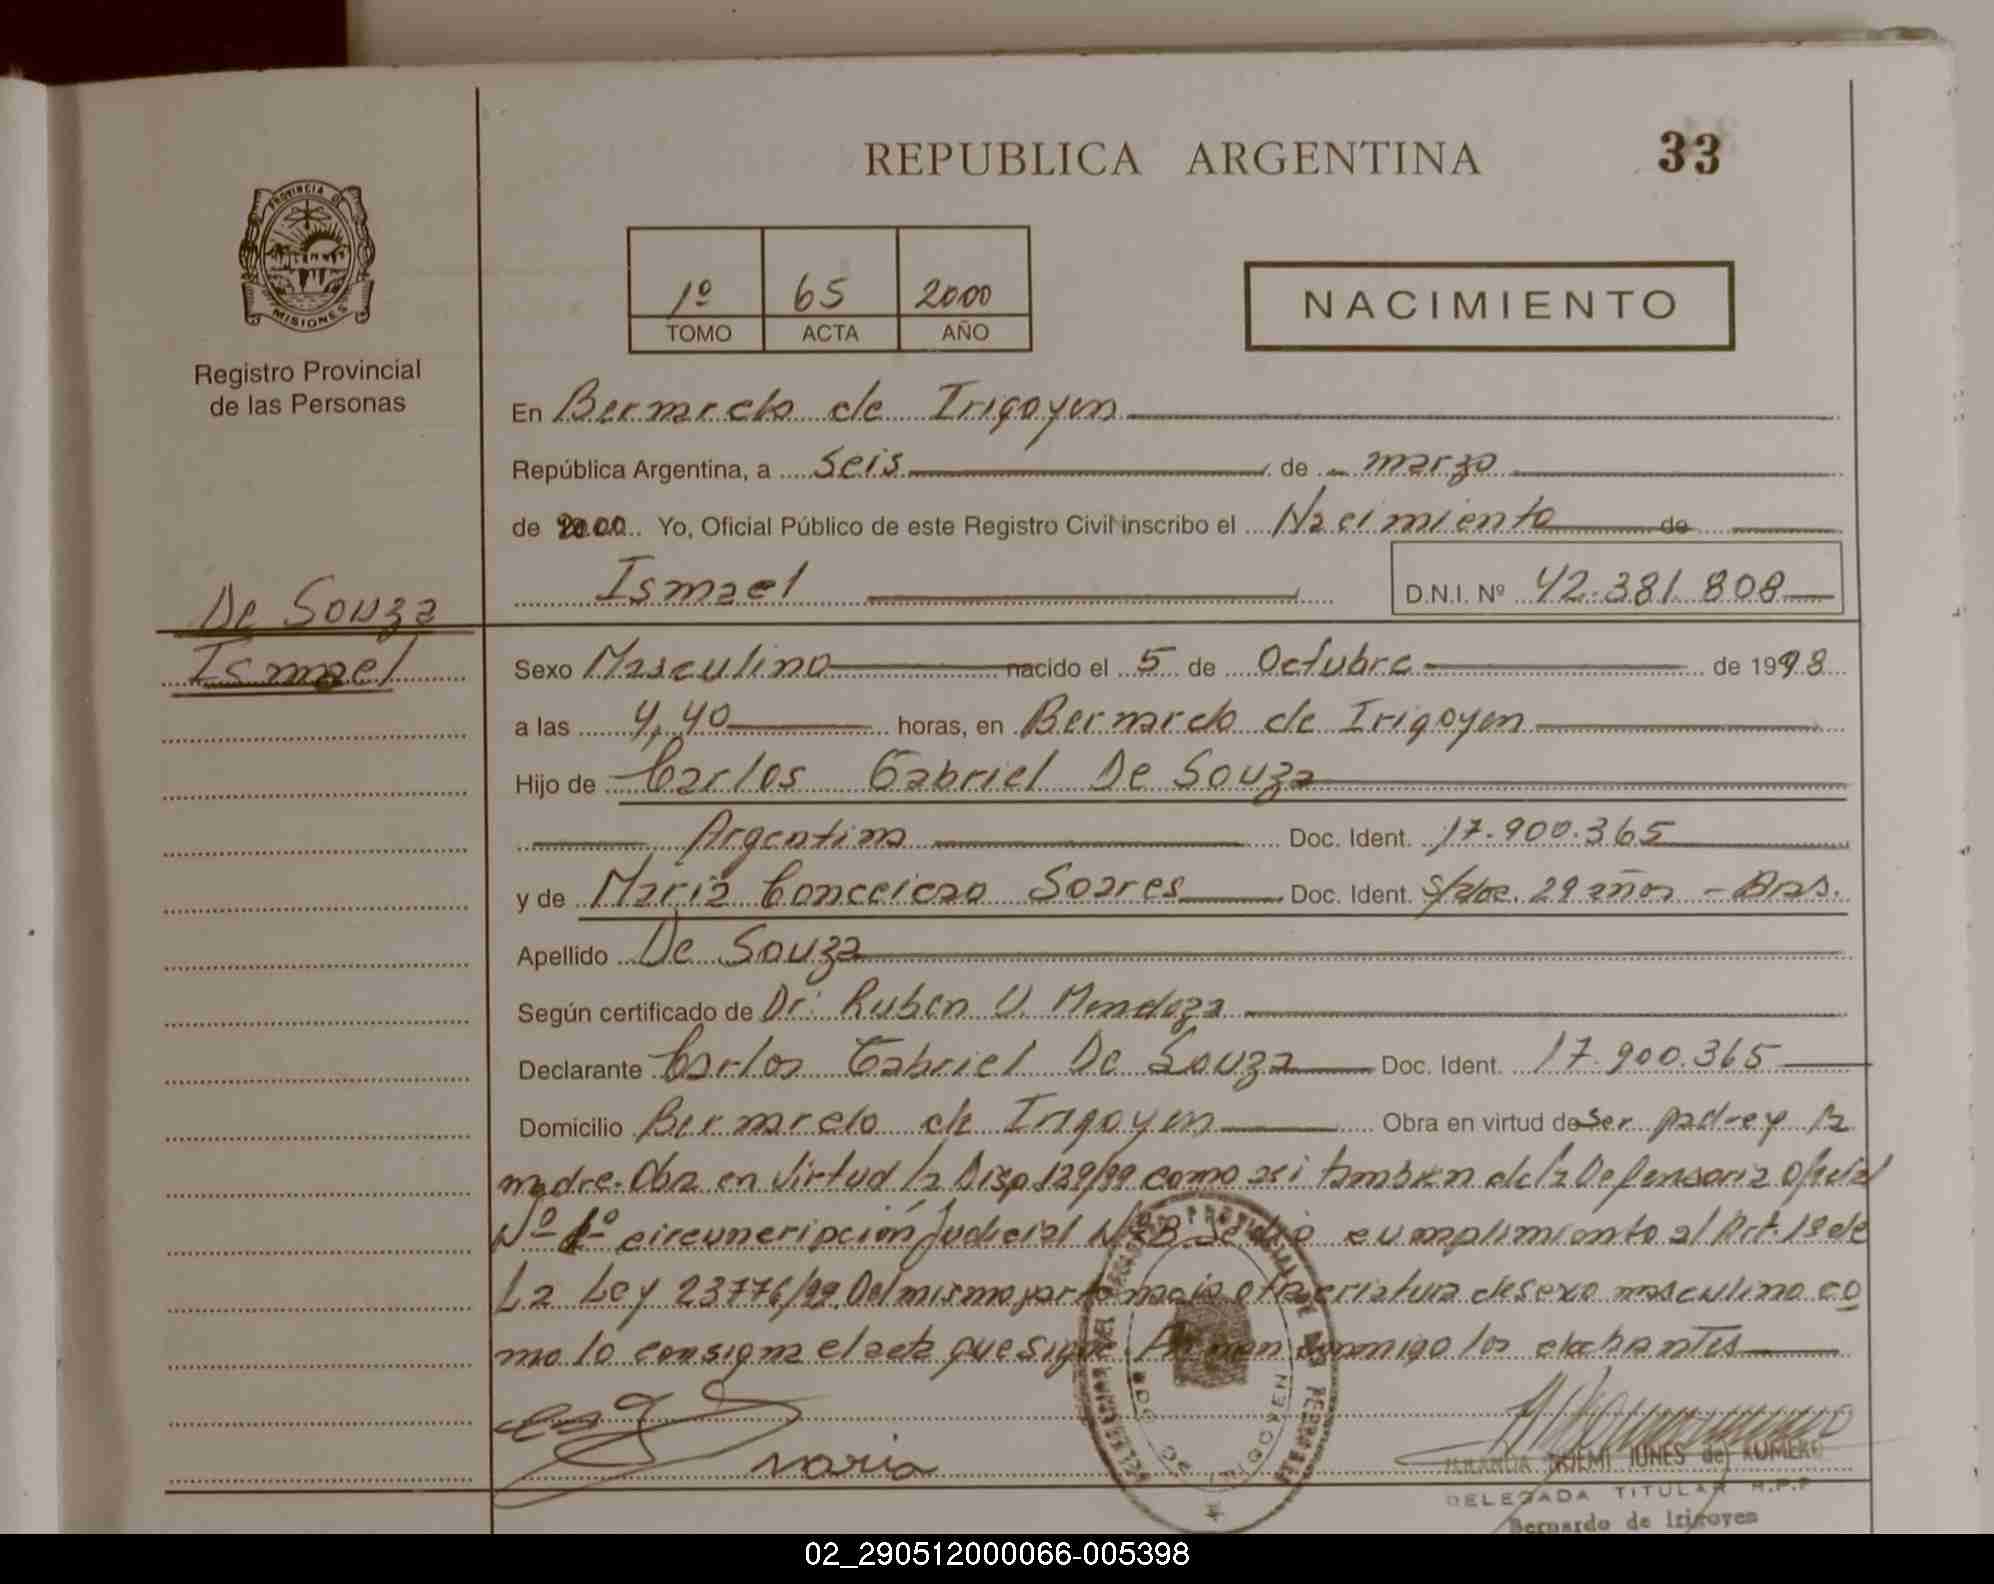 REPUBLICA ARGENTINA 33
PROVINCIA DE
MISIONES
Registro Provincial
de las Personas
1º 65 2000
TOMO ACTA AÑO
NACIMIENTO
En Bernardo de Irigoyen
República Argentina, a seis de marzo
de 2000 Yo, Oficial Público de este Registro Civil inscribo el Nacimiento de
Ismael D.N.I. Nº 42.381.808
De Souza
Ismael
Sexo Masculino nacido el 5 de Octubre de 1998
a las 4,40 horas, en Bernardo de Irigoyen
Hijo de Carlos Gabriel De Souza
Argentino Doc. Ident. 17.900.365
y de Maria Conceicao Soares Doc. Ident. 29 años - Bras.
Apellido De Souza
Según certificado de Dr. Ruben U. Mendoza
Declarante Carlos Gabriel De Souza Doc. Ident. 17.900.365
Domicilio Bernardo de Irigoyen Obra en virtud de ser padre y la
madre. Obra en virtud la Disp 129/99 como asi tambien de la Defensoria Oficial
Nº 1º circuncripción Judicial Se dio cumplimiento al Art. 18 de
La Ley 23776/99. Del mismo parto nacio otra criatura de sexo masculino co
mo lo consigna el acta que sigue. Firman conmigo los declarantes
maria
NOEMI IUNES de ROMERO
DELEGADA TITULAR R.P.P
Bernardo de Irigoyen
02_290512000066-005398